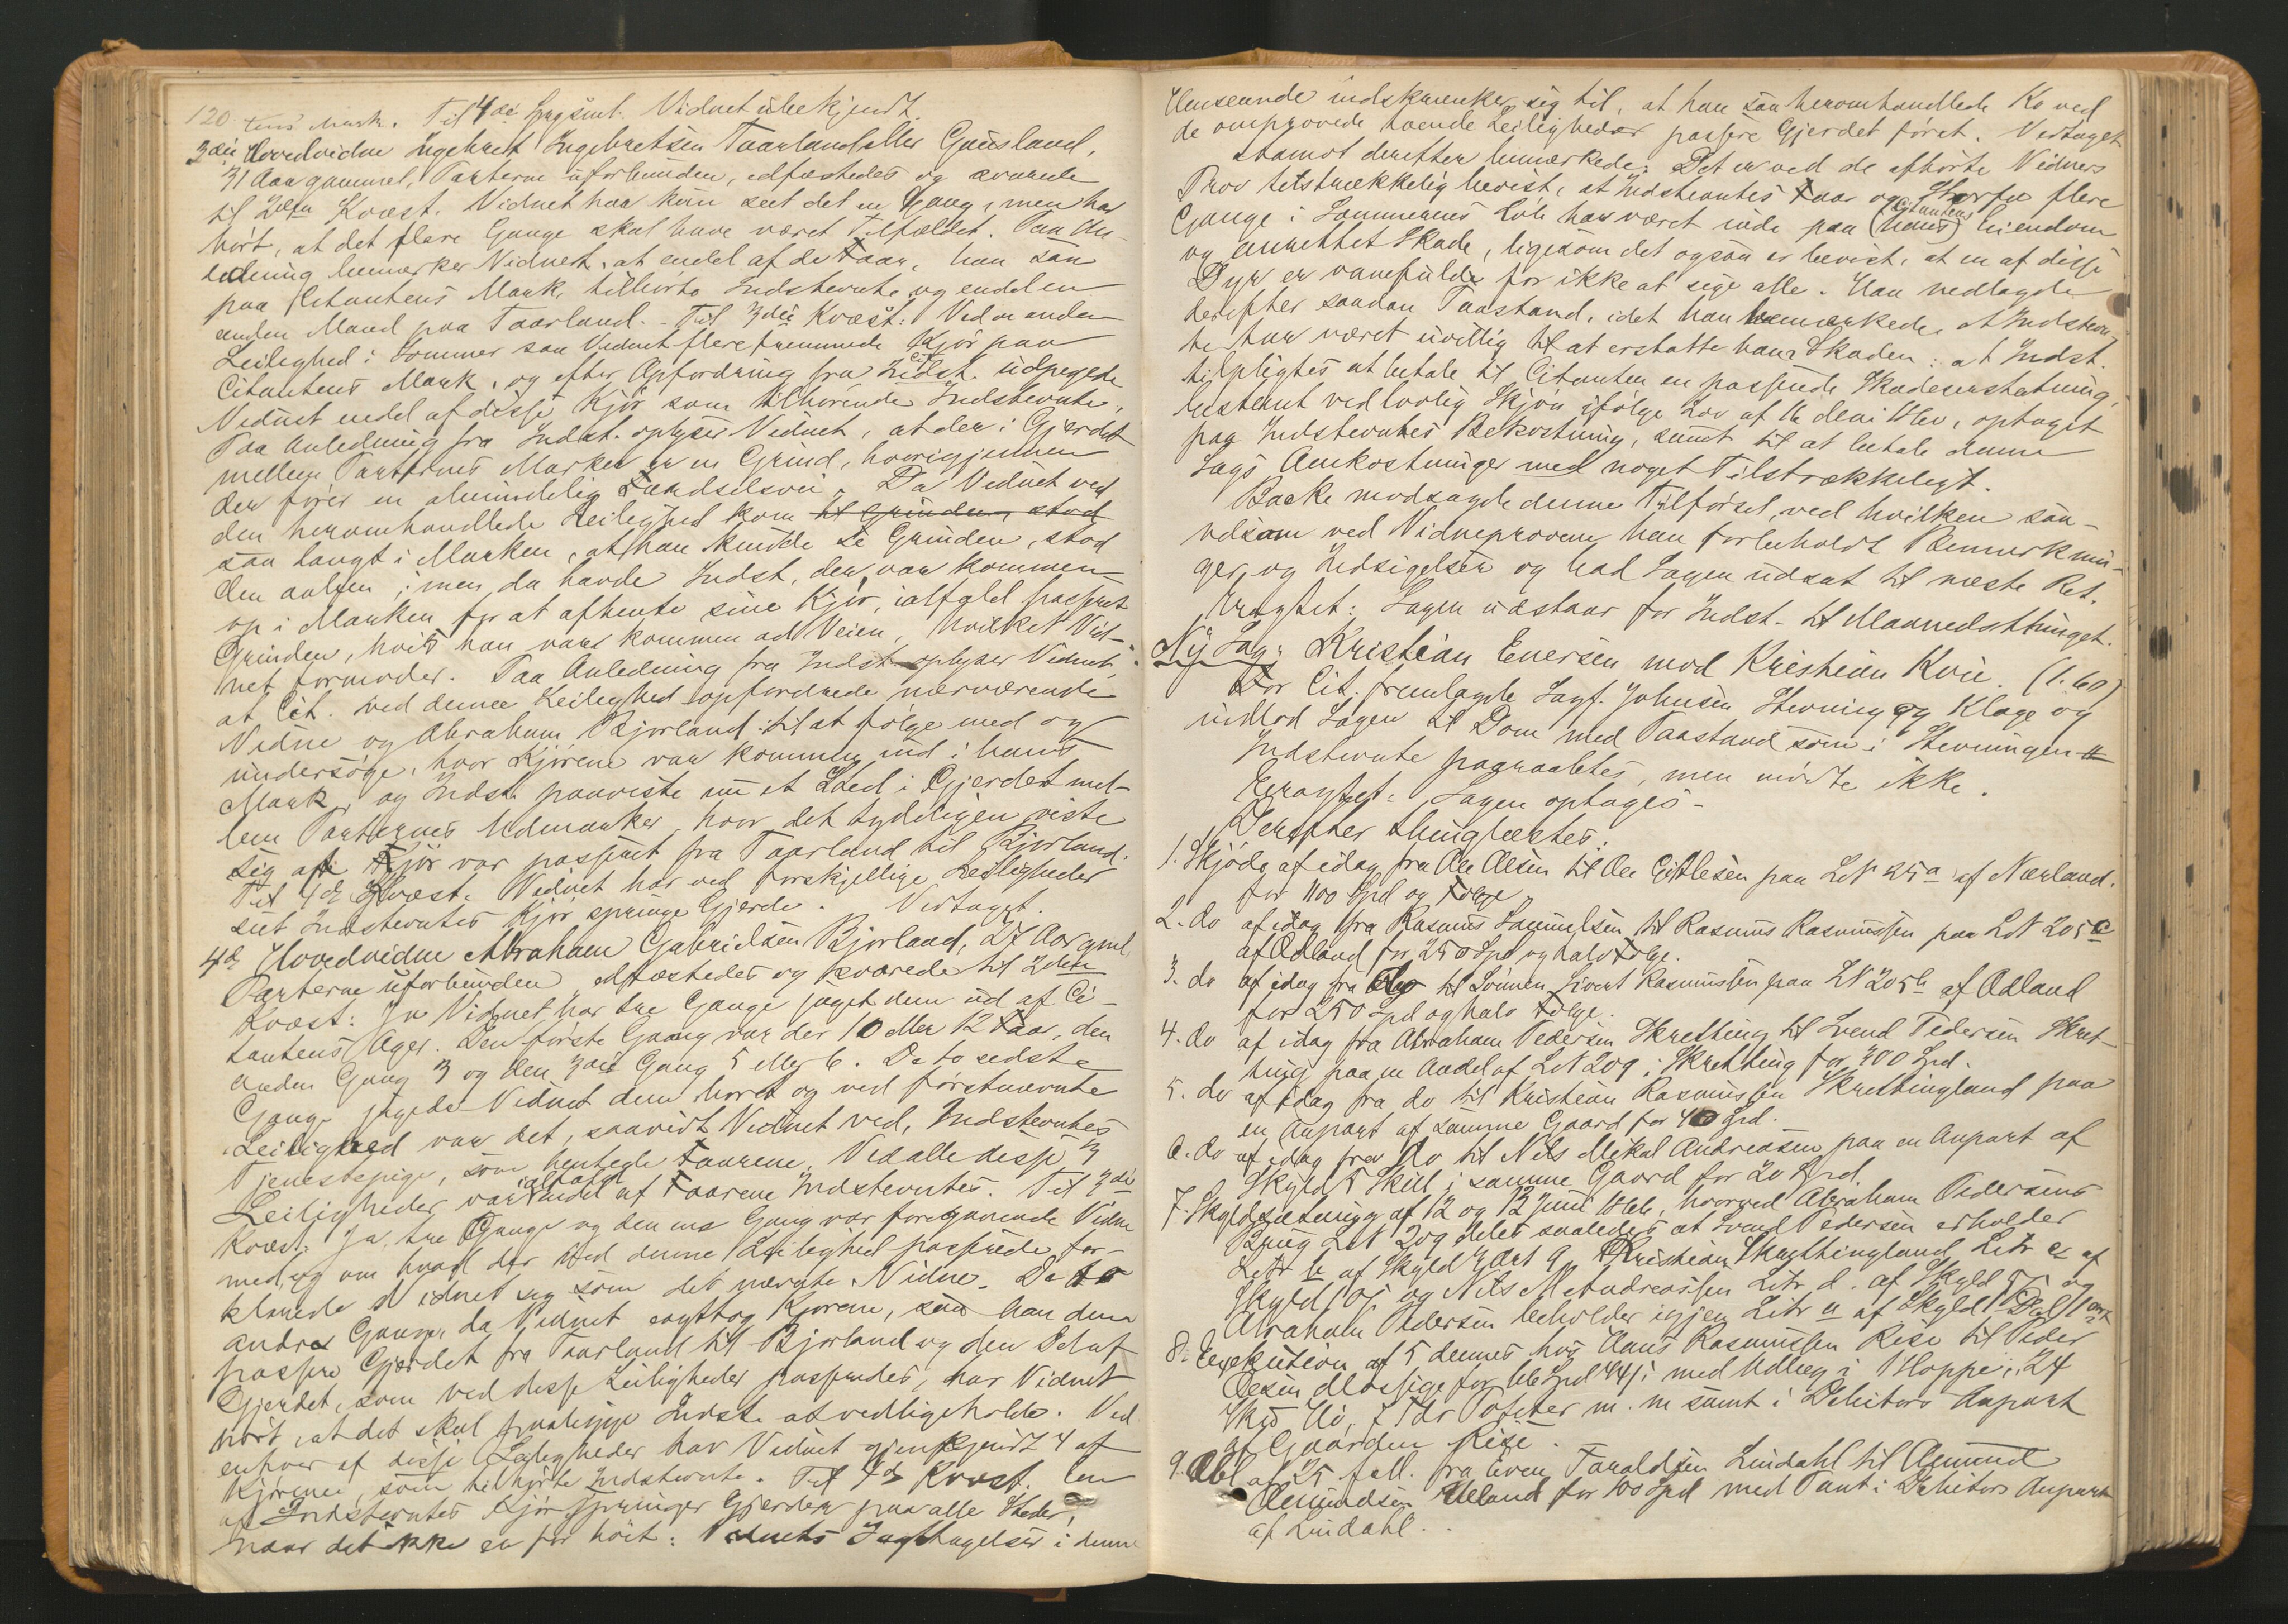 120. tens Mark. Til 4de Spgsml. Vidnet ubekjendt.
3die Hovedvidne Ingebret Ingebretsen Taarland eller Gausland,
31 Aar gammel, Parterne uforbunden, edfæstedes og svarede
til 2det Kvæst. Vidnet har kun seet det en Gang, men har
hört, at det flere Gange skal have været Tilfældet. Paa An-
ledning bemærker Vidnet, at endel af de Faar, han saa
paa Citantens Mark, tilhörte Indstevnte og endel en
anden Mand paa Taarland. - Til 3die Kvæst: Ved en anden
Leilighed i Sommer saa Vidnet flere fremmede Kjör paa
Citantens Mark, og efter Opfordring fra Cit. udpegede
Vidnet endel af disse Kjör som tilhörende Indstevnte.
Paa Anledning fra Indst. oplyser Vidnet, at der i Gjerdet
mellem Parternes Marker er en Grind, hvorigjennem
der förer en almindelig Færdselsvei. Da Vidnet ved
den heromhandlede Leilighed kom til Grinden, stod
saa langt i Marken, at han kunde se Grinden, stod
den aaben; men da havde Indst., der var kommen
op i Marken for at afhente sine Kjör, ialfald passeret
Grinden, hvis han var kommen ad Veien, hvilket Vid-
net formoder. Paa Anledning fra Indst. oplyser Vidnet,
at Cit. ved denne Leilighed opfordrede nærværende
Vidne og Abraham Bjorland til at fölge med og
undersöge, hvor Kjörene var kommen ind i hans
Mark, og Indst. paaviste nu et Sted i Gjerdet mel-
lem Parternes Udmarker, hvor det tydeligen viste
sig at Kjör var passeret fra Taarland til Bjorland.
Til 4de Kvæst. Vidnet har ved forskjellige Leiligheder
seet Indstevntes Kjör springe Gjerde. Vedtaget.
4de Hovedvidne Abraham Gabrielsen Bjorland, 27 Aar gml,
Parterne uforbunden, edfæstedes og svarede til 2det
Kvæst: Ja Vidnet har tre Gange jaget dem ud af Ci-
tantens Ager. Den förste Gang var der 10 eller 12 Faar, den
anden Gang 3 og den 3die Gang 5 eller 6. De to sidste
Gange jagede Vidnet dem bort og ved förstnævnte
Leilighed var det, saavidt Vidnet ved, Indstevntes
Tjenestepige, som hentede Faarene. Ved alle disse 3
Leiligheder var ialfald endel af Faarene Indstevntes. Til 3die
Kvæst. Ja, tre Gange og den ene Gang var foregaaende Vidne
med, og om hvad der ved denne Leilighed passerede for-
klarede Vidnet sig som det nævnte Vidne. De to
andre Gange, da Vidnet iagttog Kjörene, saa han dem
passere Gjerdet fra Taarland til Bjorland og den Del af
Gjerdet, som ved disse Leiligheder passeredes, har Vidnet
hört, at det skal paaligge Indst. at vedligeholde. Ved
enhver af disse Leiligheder har Vidnet gjenkjendt 4 af
Kjörene, som tilhörte Indstevnte. Til 4de Kvæst. En
af Indstevntes Kjör springer Gjerder paa alle Steder,
naar det ikke er for höit. Vidnets Iagttagelser i denne
Henseende indskrænker sig til, at han saa heromhandlede Ko ved
de omprovede tvende Leiligheder passere Gjerdet föret. Vedtaget
Stamot derefter bemærkede: Det er ved de afhörte Vidners
Prov tilstrækkelig bevist, at Indstevntes Faar og Storfæ flere
Gange i Sommerens Löb har været inde paa (hans) Citantens Eiendom
og anrettet Skade, ligesom det ogsaa er bevist, at en af disse
Dyr er vanefulde for ikke at sige alle. Han nedlagde
derefter saadan Paastand, idet han bemærkede, at Indstevn-
te har været uvillig til at erstatte ham Skaden: at Indst.
tilpligtes at betale til Citanten en passende Skadeserstatning,
bestemt ved lovlig Skjön ifölge Lov af 16 deni 1860, optaget
paa Indstevntes Bekostning, samt til at betale denne
Sags Omkostninger med noget Tilstrækkeligt.
Backe modsagde denne Tilförsel, ved hvilken saa-
velsom ved Vidneprovene han forbeholdt Bemærknin-
ger og Indsigelser og bad Sagen udsat til næste Ret.
Eragtet: Sagen udstaar for Indst. til Maanedsthinget.
Ny Sag: Kristian Eversen mod Kristian Kvie. (1.60)
For Cit. fremlagde Sagf. Johnsen Stevning og Klage og
indlod Sagen til Dom med Paastand som i Stevningen
Indstevnte paaraabtes, men mödte ikke.
Eragtet: Sagen optages.
Derefter thinglæstes:
1. Skjöde af idag fra Ole Olsen til Ole Eithlesen paa LN 25a af Nærland.
for 1100 Spd og Fölge.
2. do af idag fra Rasmus Samuelsen til Rasmus Rasmussen paa LN 205c
af Ødland for 250 Spd og halv Fölge.
3. do af idag fra do til Sönnen Sivert Rasmussen paa LN 205b af Ødland
for 250 Spd og halv Fölge.
4. do af idag fra Abraham Pedersen Skretting til Svend Pedersen Skret-
ting paa en Andel af LN 209 i Skretting for 400 Spd.
5. do af idag fra do til Kristian Rasmussen Skrettingland paa
en Anpart af samme Gaard for 40 Spd.
6. do af idag fra do til Nils Mikal Andreasen paa en Anpart af
Skyld 5 Skill i samme Gaard for 20 Spd.
7. Skyldsætning af 12 og 13 Juni 1866, hvorved Abraham Pedersens
Brug LN 209 deles saaledes at Svend Pedersen erholder
Litr b af Skyld 2 ort 9, Kristian Skrettingland Litr c af
Skyld og Nils M Andreassen Litr d. af Skyld 5 og
Abraham Pedersen beholder igjen Litr a af Skyld 1 Dal 1 ort
8. Exekution af 5 dennes hos Hans Rasmussen Rise til Peder
Olsen for 66 Spd 44 med Udlæg i 1 Hoppe, 24
Höi, 7 Tdr Poteter m. m samt i Debitors Anpart
af Gaarden Rise.
9. Obl af 25 f. fra Even Taraldsen Lindahl til Aamund
Aamundsen Ueland for 100 Spd med Pant i Debitors Anpart
af Lindahl.